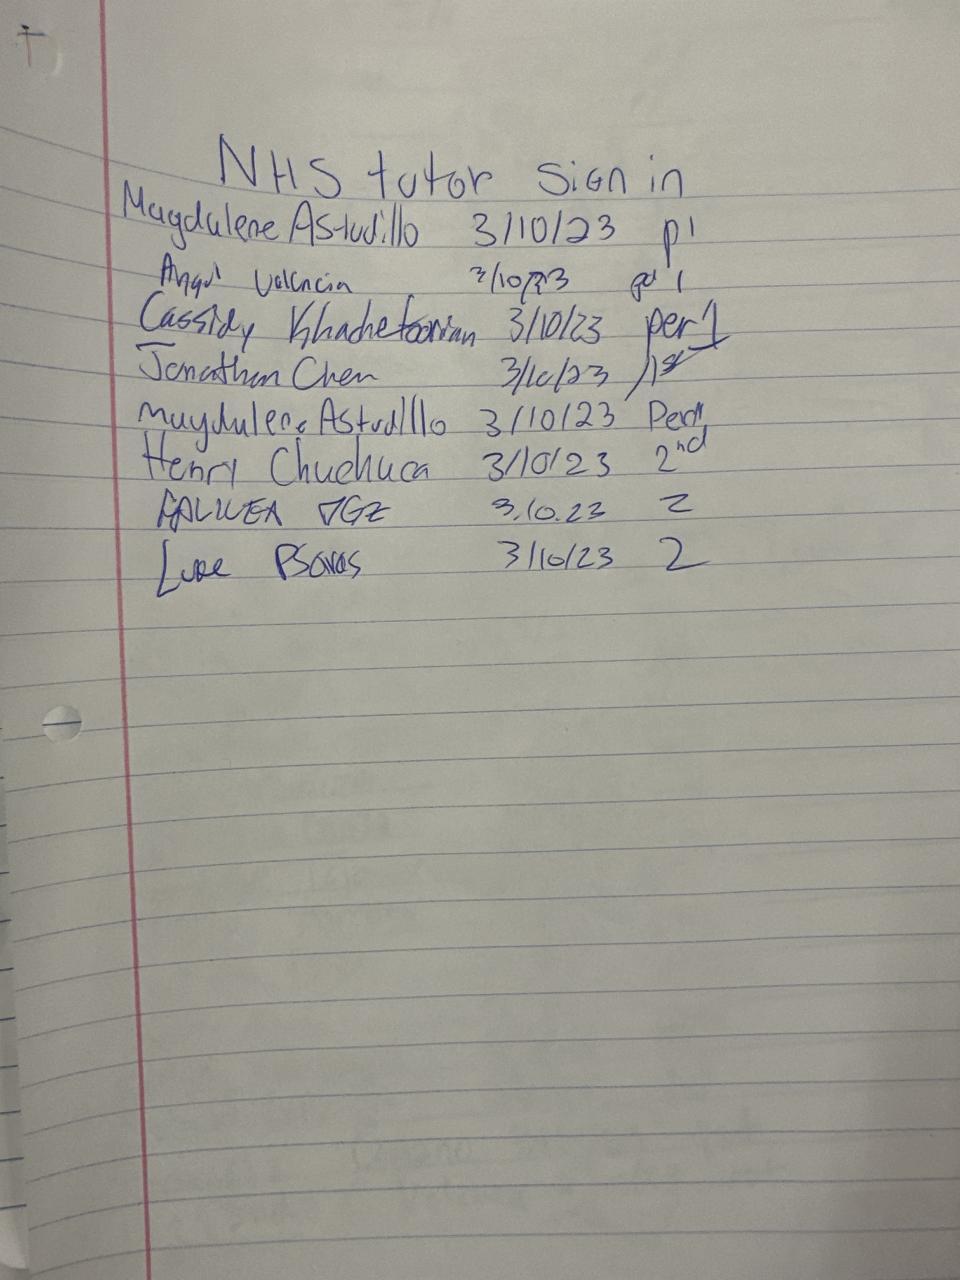 NHS tutor sign in
Magdalene Astudillo 3/10/23 p1
Valencia 3/10/23 pd 1
Cassidy Khachetoorian 3/10/23 per 1
Jonathan Chen 3/10/23 1st
Magdalene Astudillo 3/10/23 Per 1
Henry Chuchuca 3/10/23 2nd
3.10.23 2
Luke 3/10/23 2